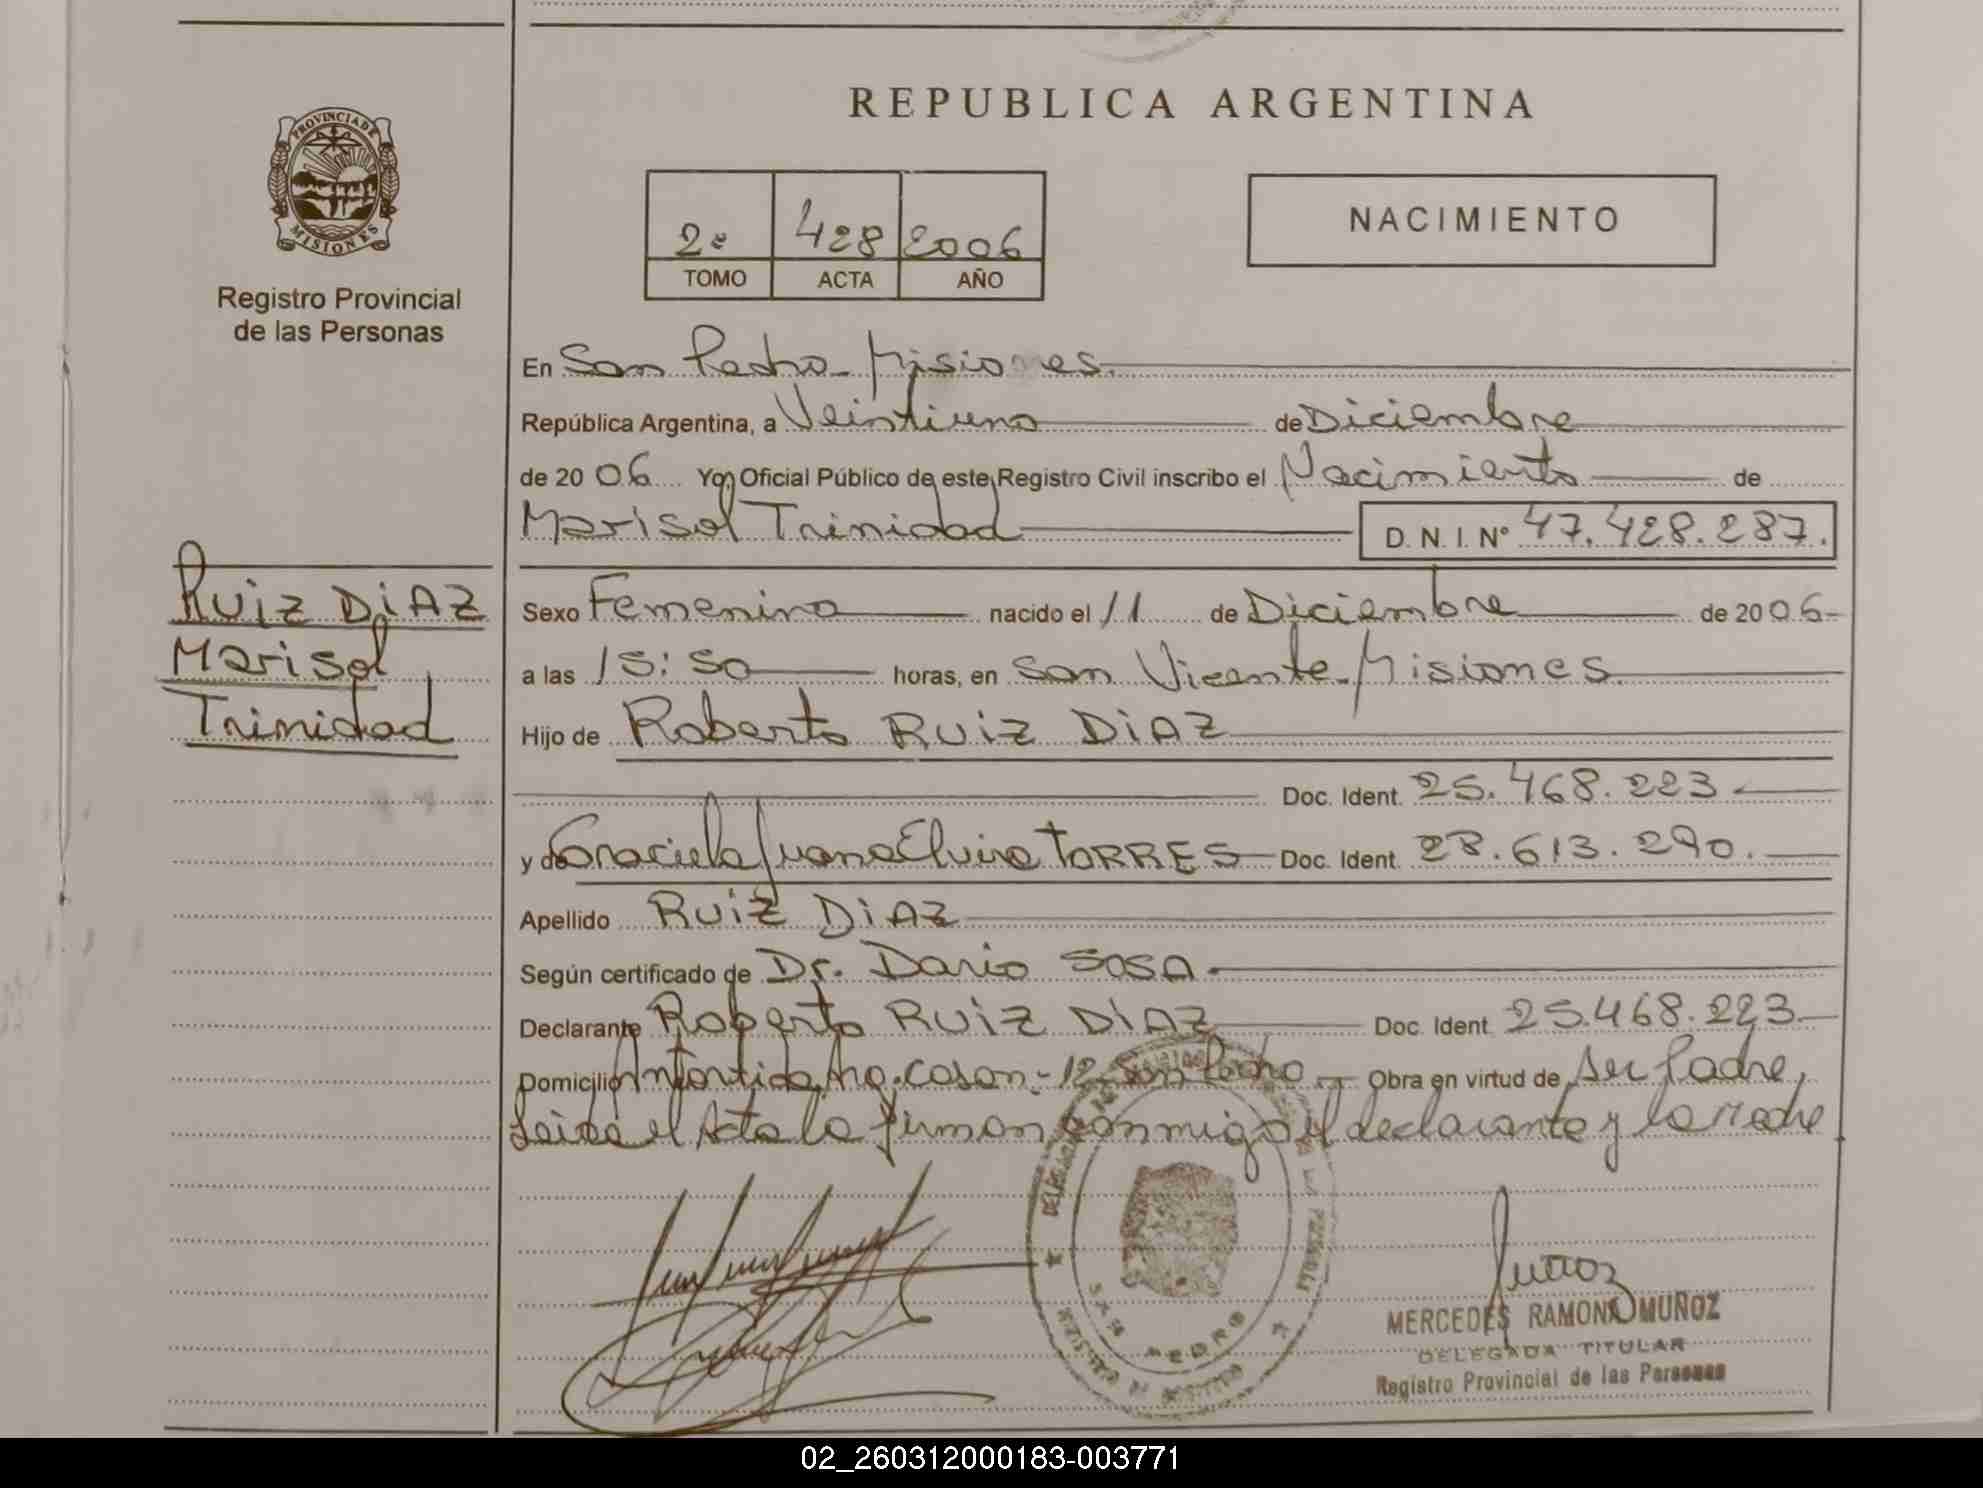 REPUBLICA ARGENTINA
PROVINCIA DE
MISIONES
Registro Provincial
de las Personas
2º 428 2006
TOMO ACTA AÑO
NACIMIENTO
En San Pedro - Misiones.
República Argentina, a Veintiuno de Diciembre
de 2006 Yo, Oficial Público de este Registro Civil inscribo el Nacimiento de
Marisol Trinidad D. N. I. Nº 47.428.287.
RUiZ DiAZ
Marisol
Trinidad
Sexo Femenino nacido el 11 de Diciembre de 2006-
a las 15:50 horas, en San Vicente - Misiones
Hijo de Roberto RUiZ DiAZ
Doc. Ident. 25.468.223
y de Graciela Juana Elvira TORRES Doc. Ident. 28.613.290.
Apellido RUiZ DiAZ
Según certificado de Dr. Dario SOSA.
Declarante Roberto RUiZ DiAZ Doc. Ident. 25.468.223
Domicilio Casa - 12 San Pedro Obra en virtud de ser Padre,
Leída el Acta la firman conmigo el declarante y la madre
SAN PEDRO
MERCEDES RAMONA MUÑOZ
DELEGADA TITULAR
Registro Provincial de las Personas
02_260312000183-003771